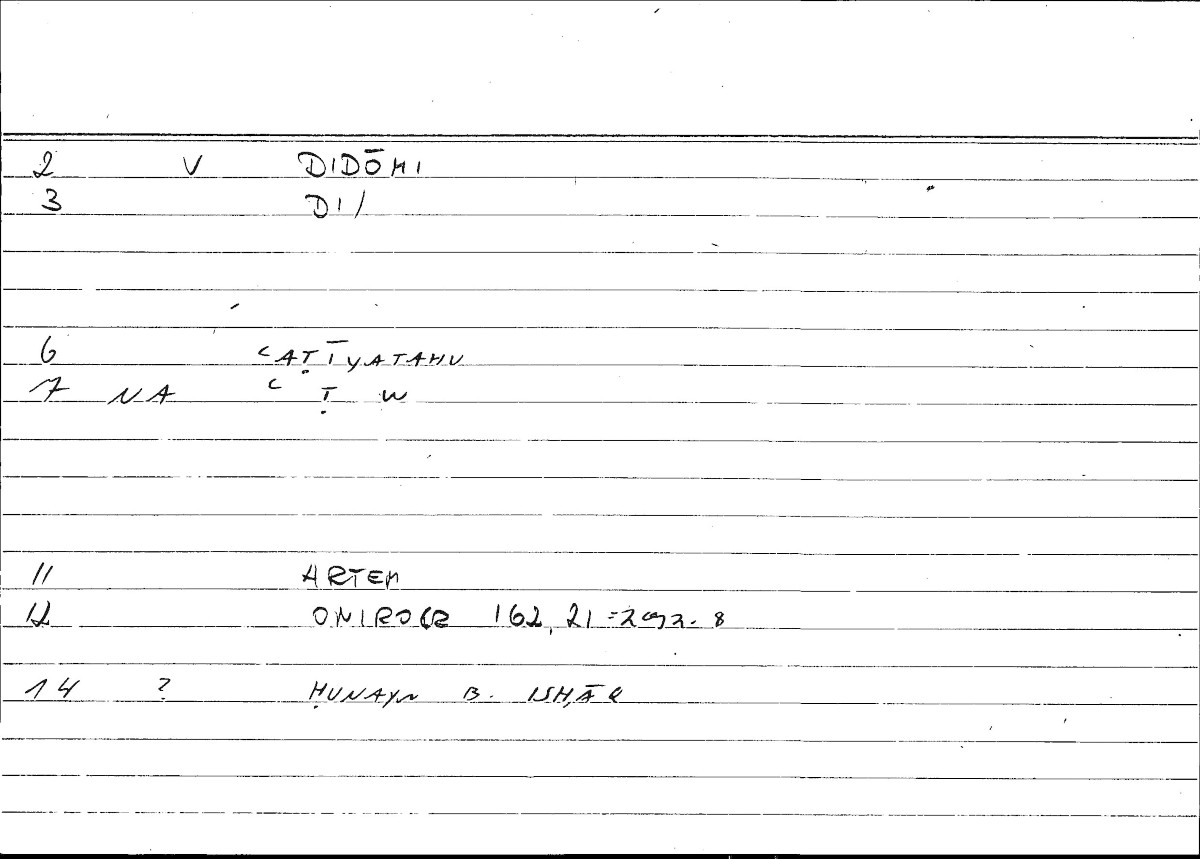 2 V DIDŌMI
3 DI/
6 ʿAṬĪYATAHU
7 NA ʿ Ṭ W
11 ARTEM
12 ONIROCR 162, 21 =
14 ? ḤUNAYN B. ISḤĀQ